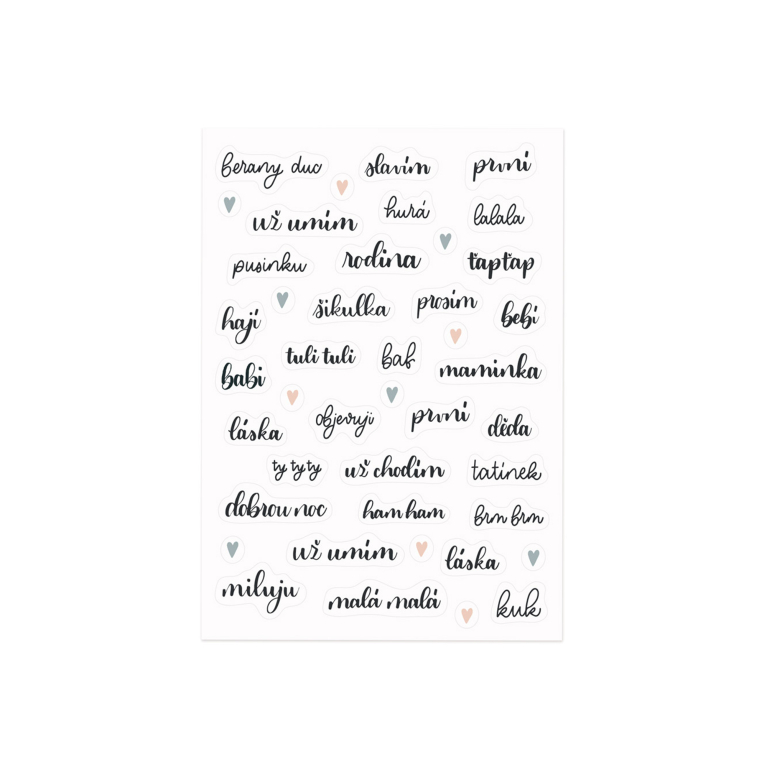 berany duc slavím první
už umím hurá lalala
pusinku rodina ťapťap
hají šikulka prosím bebí
babi tuli tuli baf maminka
láska objevuji první děda
ty ty ty už chodím tatínek
dobrou noc ham ham brm brm
už umím láska
miluju malá malá kuk